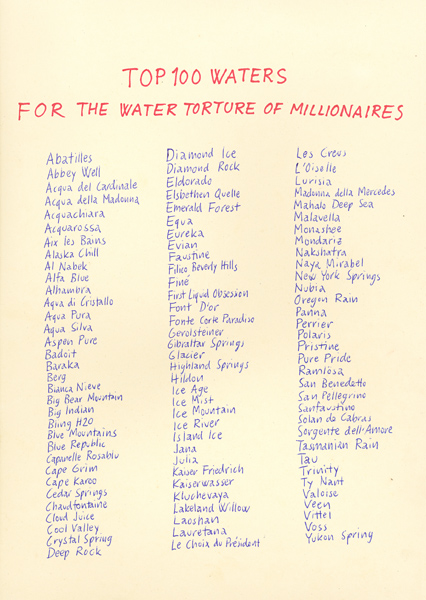 TOP 100 WATERS
FOR THE WATER TORTURE OF MILLIONAIRES
Abatilles
Abbey Well
Acqua del Cardinale
Acqua della Madonna
Acquachiara
Acquarossa
Aix les Bains
Alaska Chill
Al Nabek
Alfa Blue
Alhambra
Aqua di Cristallo
Aqua Pura
Aqua Silva
Aspen Pure
Badoit
Baraka
Berg
Bianca Nieve
Big Bear Mountain
Big Indian
Bling H2O
Blue Mountains
Blue Republic
Capanelle Rosablu
Cape Grim
Cape Karoo
Cedar Springs
Chaudfontaine
Cloud Juice
Cool Valley
Crystal Spring
Deep Rock
Diamond Ice
Diamond Rock
Eldorado
Elsbethen Quelle
Emerald Forest
Equa
Eureka
Evian
Faustine
Filico Beverly Hills
Finé
First Liquid Obsession
Font D'or
Fonte Corte Paradiso
Gerolsteiner
Gibraltar Springs
Glacier
Highland Springs
Hildon
Ice Age
Ice Mist
Ice Mountain
Ice River
Island Ice
Jana
Julia
Kaiser Friedrich
Kaiserwasser
Kluchevaya
Lakeland Willow
Laoshan
Lauretana
Le Choix du Président
Les Creus
L'Oiselle
Lurisia
Madonna della Mercedes
Mahalo Deep Sea
Malavella
Monashee
Mondariz
Nakshatra
Naya Mirabel
New York Springs
Nubia
Oregon Rain
Panna
Perrier
Polaris
Pristine
Pure Pride
Ramlösa
San Benedetto
San Pellegrino
Sanfaustino
Solan de Cabras
Sorgente dell'Amore
Tasmanian Rain
Tau
Trinity
Ty Nant
Valoise
Veen
Vittel
Voss
Yukon Spring